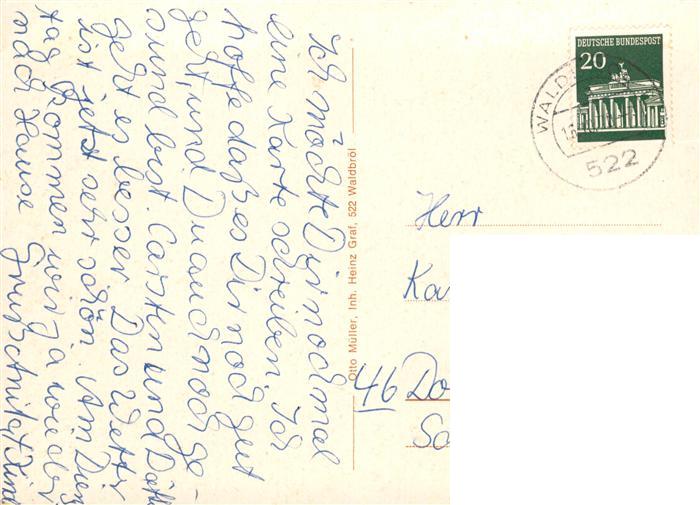 Ich möchte Dir noch mal
eine Karte schreiben. Ich
hoffe daß es Dir noch gut
geht, und Du auch noch ge-
sund bist. Carsten und
geht es besser Das Wetter
ist jetzt sehr schön. Am Diens
tag kommen wir ja wieder
nach Hause
Otto Müller, Inh. Heinz Graf, 522 Waldbröl
DEUTSCHE BUNDESPOST
20
WALD
522
Herr
Ka
46 Do